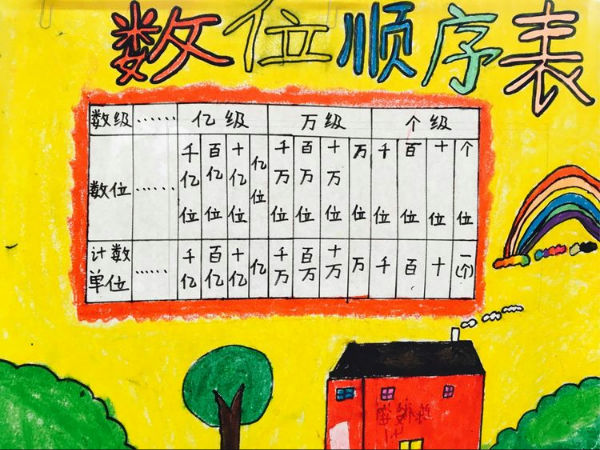 数位顺序表
数级 …… 亿级 万级 个级
数位 …… 千亿位 百亿位 十亿位 亿位 千万位 百万位 十万位 万位 千位 百位 十位 个位
计数单位 …… 千亿 百亿 十亿 亿 千万 百万 十万 万 千 百 十 一(个)